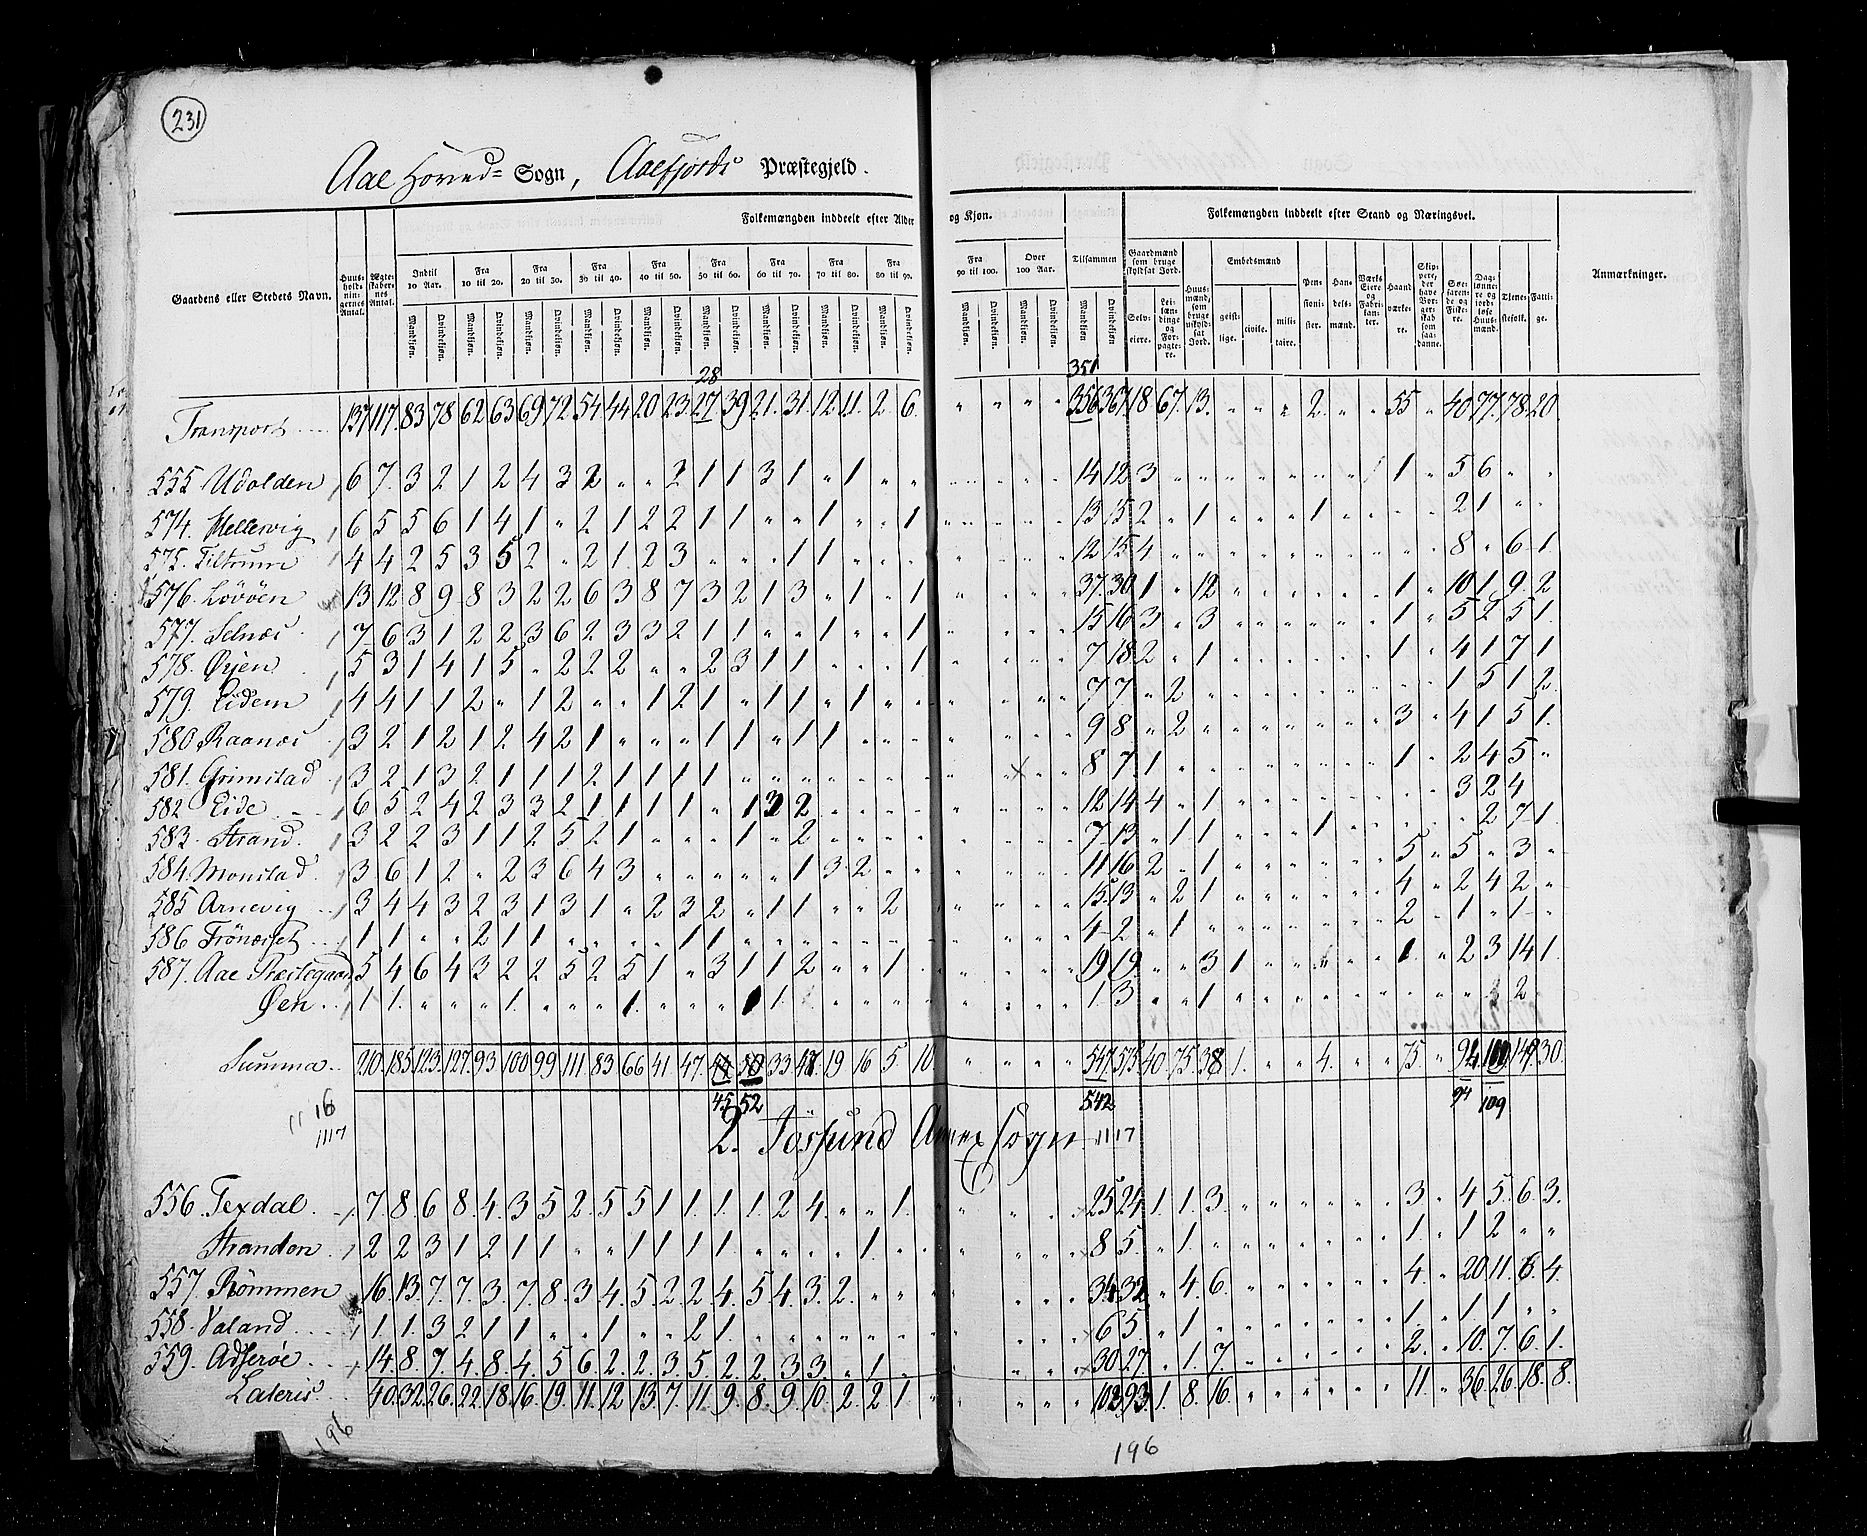 231
Aae Hoved= Sogn, Aaefjords Præstegjeld.
Gaardens eller Stedets Navn.
Huusholdningernes Antal.
Ægteskabernes Antal.
Folkemængden inddeelt efter Alder og Kjøn.
Indtil 10 Aar. Fra 10 til 20. Fra 20 til 30. Fra 30 til 40. Fra 40 til 50. Fra 50 til 60. Fra 60 til 70. Fra 70 til 80. Fra 80 til 90. Fra 90 til 100. Over 100 Aar. Tilsammen
Mandkjøn. Qvindekjøn.
Folkemængden inddeelt efter Stand og Næringsvei.
Gaardmænd som bruge skyldsat Jord.
Selveiere. Leilændinge og Forpagtere.
Huusmænd, som bruge uskyldsat Jord.
Embedsmænd
geistlige. civile. militaire.
Pensionister.
Handelsmænd.
Værks Eiere og Fabrikanter.
Haandværkere.
Skippere, der have Borgerskab som saadanne.
Søefarende og Fiskere.
Daglønnere og jordløse Huusmænd.
Tjenestefolk.
Fattige.
Anmærkninger.
28 351
Transport 137 117 83 78 62 63 69 72 54 44 20 23 27 39 21 31 12 11 2 6 " " " " 356 367 18 67 13 " " " 2 " " 55 " 40 77 78 20
555 Udolden 6 7 3 2 1 2 4 3 2 " " 2 1 1 3 1 " 1 " " " " " " 14 12 3 " " " " " " " " 1 " 5 6 " "
574 Mellervig 6 5 5 6 1 4 1 " 2 1 2 2 1 1 " " 1 " " 1 " " " " 13 15 2 " 1 " " " 1 " " " " 2 1 " "
575 Tiltrum 4 4 2 5 3 5 2 " 2 1 2 3 " " " 1 1 " " " " " " " 12 15 4 " " " " " " " " " " 8 " 6 1
576 Lövöen 13 12 8 9 8 3 2 2 6 3 8 7 3 2 1 3 " 1 " 1 " " " " 37 30 1 " 12 " " " " " " 1 " 10 1 9 2
577 Selnæs 7 6 3 1 2 2 3 6 2 3 3 2 1 1 " " 1 " " 1 " " " " 15 16 3 " 3 " " " " " " 1 " 5 2 5 1
578 Øyen 5 3 1 4 1 5 " 2 2 2 " " 2 3 1 1 " " " 1 " " " " 7 18 2 " 1 " " " " " " 1 " 4 1 7 1
579 Eidem 4 4 1 1 2 " 1 2 " " 1 2 1 " 1 1 " 1 " " " " " " 7 7 " 2 " " " " " " " " " 1 5 1 2
580 Raanæs 3 2 1 2 1 2 4 2 1 " " " 1 1 " 1 1 " " " " " " " 9 8 " 2 " " " " " " " 3 " 4 1 5 1
581 Grimstad 3 2 1 3 2 1 1 1 2 1 1 1 1 " " " " " " " " " " " 8 7 1 " " " " " " " " 1 " 2 4 5 "
582 Eide 6 5 2 4 2 3 3 2 1 1 1 1 " 1 3 2 " " " " " " " " 12 14 4 " 1 " " " " " " " " 3 2 4
583 Strand 3 2 2 3 1 1 2 5 2 1 " " " 1 " 2 " " " " " " " " 7 13 " 1 1 " " " 1 " " " " " 2 7 1
584 Monstad 3 6 1 2 " 2 3 6 4 3 " " " " " 1 3 2 " " " " " " 11 16 2 " 1 " " " " " " 5 " 5 " 3 "
585 Arnevig 3 4 4 3 2 3 1 3 1 " 2 3 2 " 1 1 " " 2 " " " " 15 13 " 2 1 " " " " " " 4 " 2 4 2 "
586 Trönæsset 1 1 " " 2 1 1 " " " " 1 1 " " " " " " " " " " " 4 2 " 1 " " " " " " " 2 " 1 " 1 "
587 Aae Præstegaard 5 4 6 4 3 2 2 5 2 5 1 " 3 1 1 2 " " 1 " " " " " 19 19 " " 3 1 " " " " " 1 " 2 3 14 1
Øen 1 1 " " " 1 " " " 1 " " " 1 1 " " " " " " " " " 1 3 " " 1 " " " " " " " " 2
Summa 210 185 123 127 93 100 99 111 83 66 41 47 33 19 16 5 10 " " " " 547 575 40 75 38 1 " " 4 " " 75 " 94 149 30
16 45 52 542 94 109
1117
2. Jössund Annex Sogn 1117
556 Texdal 7 8 6 8 4 3 5 2 5 5 1 1 1 1 2 4 " " 1 " " " " 25 24 1 1 3 " " " " " " 3 " 4 5 6 3
Stranden 2 2 3 1 2 1 1 " " 1 1 1 1 " " " " 1 " " " " " 8 5 " 1 " " " " " " " 1 " 1 2 " "
557 Römmen 16 13 7 7 3 7 8 3 4 5 2 2 4 5 4 3 2 " " " " " " 34 32 " 4 6 " " " " " " 4 " 20 11 6 4
558 Valand 1 1 3 2 1 1 " " 1 " " 2 1 " " " " " " " " " " 6 5 " 1 " " " " " " " 1 " 1 1 " "
559 Adseröe 14 8 7 4 8 4 5 6 2 2 3 5 2 2 3 3 " 1 " " " " " 30 27 " 1 7 " " " " " " 2 " 10 7 6 1
Lateris 40 32 26 22 18 16 19 11 12 13 7 11 9 8 9 10 2 2 1 " " " " 103 93 1 8 16 " " " " " " 11 " 36 26 18 8
196 196